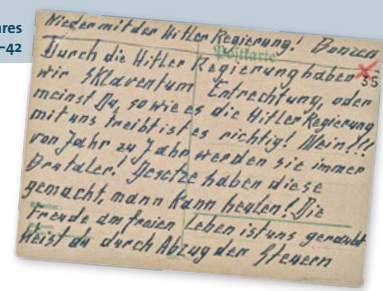 ares
–42
Nieder mit der Hitler Regierung! Bonzen
Postkarte
Durch die Hitler Regierung haben SS
wir Sklaventum Entrechtung, oder
meinst Du, so wie es die Hitler Regierung
mit uns treibt ist es richtig! Nein!!!
von Jahr zu Jahr werden sie immer
Brutaler! Gesetze haben diese
gemacht, mann kann heulen! Die
Freude am freien Leben ist uns geraubt
Weist du durch Abzug der Steuern